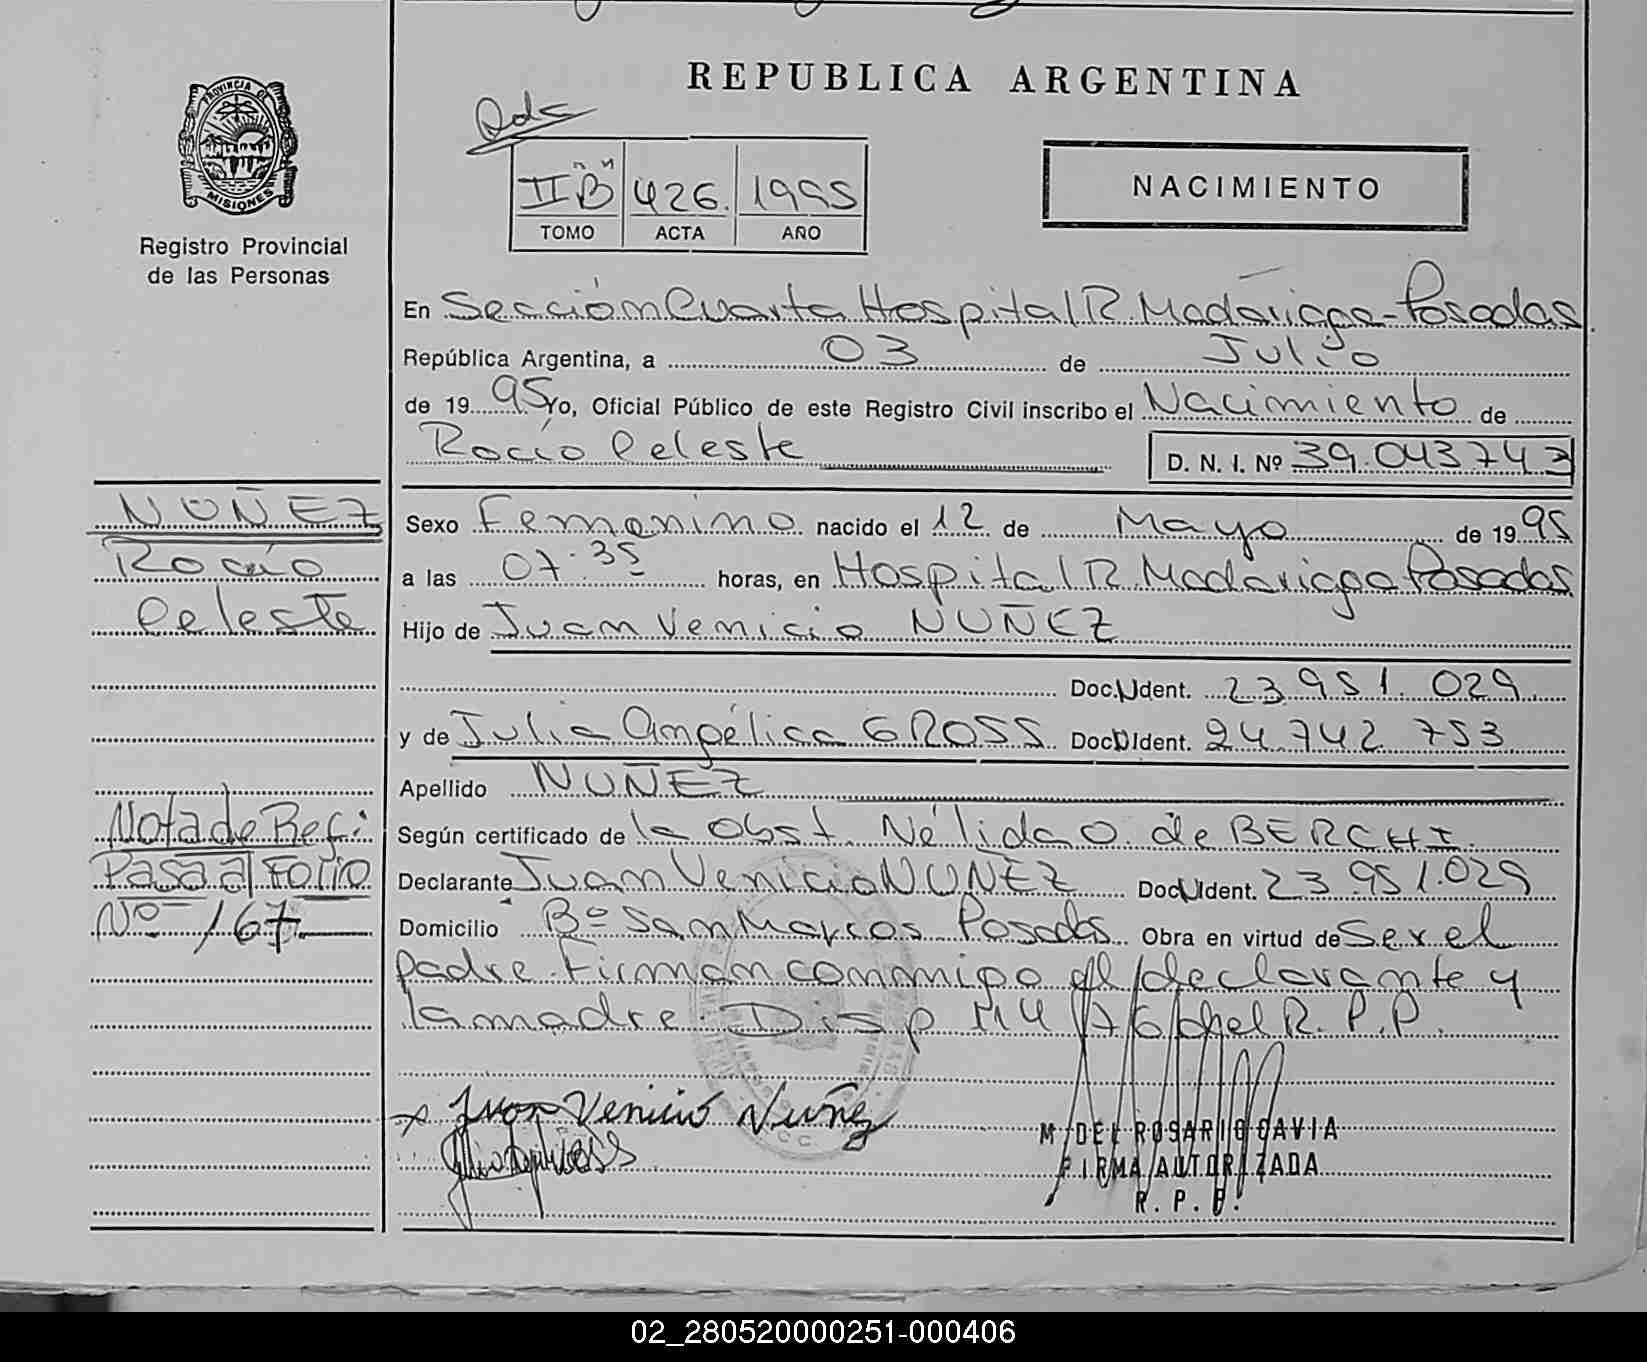 REPUBLICA ARGENTINA
PROVINCIA DE
MISIONES
Registro Provincial
de las Personas
IIB 426. 1995
TOMO ACTA AÑO
NACIMIENTO
En Sección Cuarta Hospital R. Madariaga - Posadas.
República Argentina, a 03 de Julio
de 19 95 Yo, Oficial Público de este Registro Civil inscribo el Nacimiento de
Rocío Celeste D. N. I. Nº 39.043743
NUÑEZ
Rocío
Celeste
Sexo Femenino nacido el 12 de Mayo de 19 95
a las 07.35 horas, en Hospital R. Madariaga Posadas
Hijo de Juan Venicio NUÑEZ
Doc. Ident. 23.951.029
y de Julia Angélica GROSS Doc. Ident. 24.742.753
Apellido NUÑEZ
Según certificado de la Obst. Nélida O. de BERCHI.
Declarante Juan Venicio NUÑEZ Doc. Ident. 23.951.029
Domicilio Bº San Marcos Posadas Obra en virtud de Ser el
padre. Firman conmigo el declarante y
la madre. Disp 114/76 del R.P.P.
Nota de Ref:
Pasa al Folio
Nº 167
Juan Venicio Nuñez
M. DEL ROSARIO GAVIA
FIRMA AUTORIZADA
R. P. P.
02_280520000251-000406